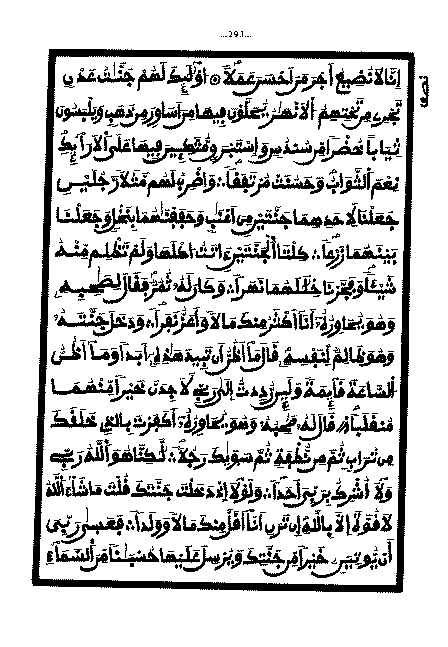 ...291...
نصف
إنا لا نضيع أجر من أحسن عملا ۝ أولئك لهم جنت عدن
تجرى من تحتهم الأنهر يحلون فيها من أساور من ذهب ويلبسون
ثيابا خضرا من سندس وإستبرق متكئين فيها على الأرائك
نعم الثواب وحسنت مرتفقا ؞ واضرب لهم مثلا رجلين
جعلنا لأحدهما جنتين من أعنب وحففنهما بنخل وجعلنا
بينهما زرعا ؞ كلتا الجنتين ءاتت أكلها ولم تظلم منه
شيئا وفجرنا خللهما نهرا ؞ وكان له ثمر فقال لصحبه
وهو يحاوره أنا أكثر منك مالا وأعز نفرا ؞ ودخل جنته
وهو ظالم لنفسه قال ما أظن أن تبيد هذه أبدا وما أظن
الساعة قائمة ولئن رددت إلى ربى لأجدن خيرا منهما
منقلبا ؞ قال له صحبه وهو يحاوره أكفرت بالذى خلقك
من تراب ثم من نطفة ثم سويك رجلا ؞ لكنا هو الله ربى
ولا أشرك بربى أحدا ؞ ولولا إذ دخلت جنتك قلت ما شاء الله
لا قوة إلا بالله إن ترن أنا أقل منك مالا وولدا ؞ فعسى ربى
أن يوتين خيرا من جنتك ويرسل عليها حسبنا من السماء